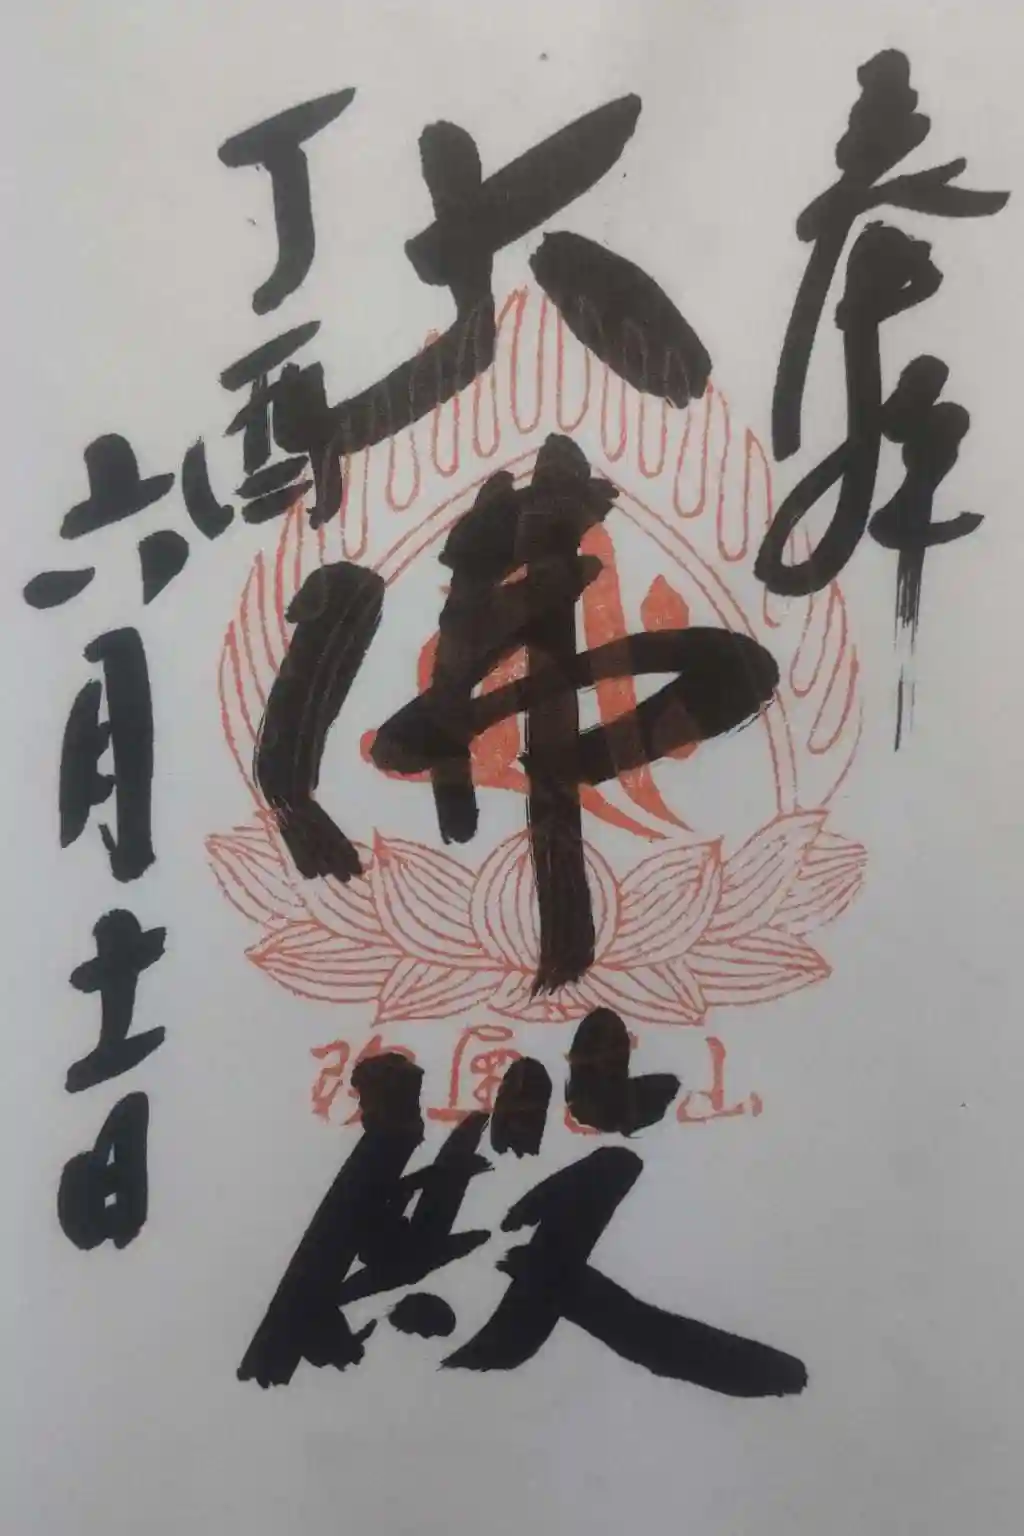 奉拝
大佛殿
丁酉
六月十一日